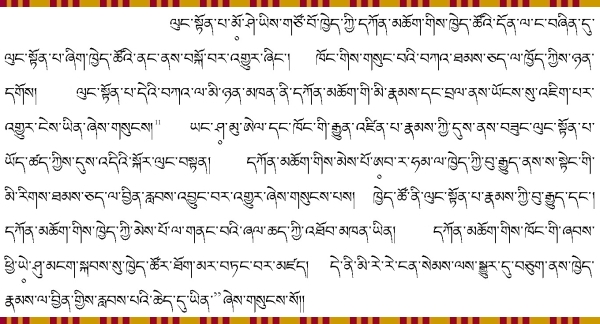 ལུང་སྟོན་པ་མོ་ཤེ་ཡིས་གཙོ་བོ་ཁྱེད་ཀྱི་དཀོན་མཆོག་གིས་ཁྱེད་ཚོའི་དོན་ལ་ང་བཞིན་དུ་
ལུང་སྟོན་པ་ཞིག་ཁྱེད་ཚོའི་ནང་ནས་བསྐོ་བར་འགྱུར་ཞིང་། ཁོང་གིས་གསུང་བའི་བཀའ་ཐམས་ཅད་ལ་ཁྱོད་ཀྱིས་ཉན་
དགོས། ལུང་སྟོན་པ་དེའི་བཀའ་ལ་མི་ཉན་མཁན་ནི་དཀོན་མཆོག་གི་མི་རྣམས་དང་བྲལ་ནས་ཡོངས་སུ་འཇིག་པར་
འགྱུར་ངེས་ཡིན་ཞེས་གསུངས།" ཡང་ཤུ་མུ་ཨེལ་དང་ཁོང་གི་རྒྱུན་འཛིན་པ་རྣམས་ཀྱི་དུས་ནས་བཟུང་ལུང་སྟོན་པ་
ཡོད་ཚད་ཀྱིས་དུས་འདིའི་སྐོར་ལུང་བསྟན། དཀོན་མཆོག་གིས་མེས་པོ་ཨབ་ར་ཧམ་ལ་ཁྱེད་ཀྱི་བུ་རྒྱུད་ནས་ས་སྟེང་གི་
མི་རིགས་ཐམས་ཅད་ལ་བྱིན་རླབས་འབྱུང་བར་འགྱུར་ཞེས་གསུངས་པས། ཁྱེད་ཚོ་ནི་ལུང་སྟོན་པ་རྣམས་ཀྱི་བུ་རྒྱུད་དང་།
དཀོན་མཆོག་གིས་ཁྱེད་ཀྱི་མེས་པོ་ལ་གནང་བའི་ཞལ་ཆད་ཀྱི་འཐོབ་མཁན་ཡིན། དཀོན་མཆོག་གིས་ཁོང་གི་ཞབས་
ཕྱི་ཡེ་ཤུ་མངག་སྐབས་སུ་ཁྱེད་ཚོར་ཐོག་མར་བཏང་བར་མཛད། དེ་ནི་མི་རེ་རེ་ངན་སེམས་ལས་སྒྱུར་དུ་བཅུག་ནས་ཁྱེད་
རྣམས་ལ་བྱིན་གྱིས་རླབས་པའི་ཆེད་དུ་ཡིན་"ཞེས་གསུངས་སོ།།